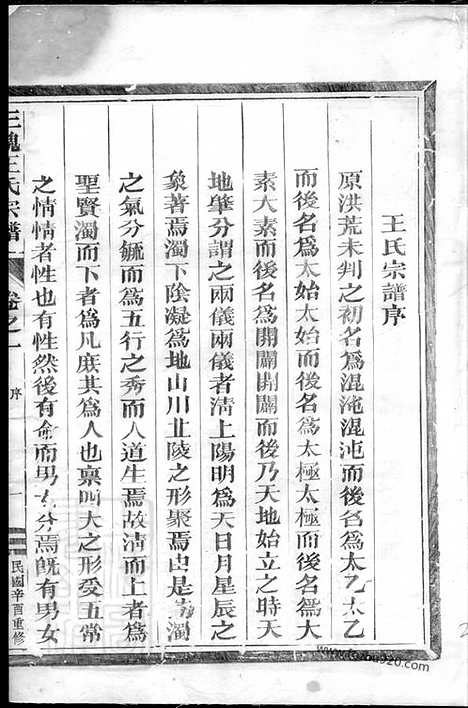 王氏宗譜序
原洪荒未判之初名爲混沌混沌而後名爲太乙太乙
而後名爲太始太始而後名爲太極太極而後名爲大
素大素而後名爲開闢開闢而後乃天地始立之時天
地肇分謂之兩儀兩儀者淸上陽明爲天日月星辰之
象著焉濁下陰凝爲地山川丘陵之形聚焉由是淸濁
之氣分毓而爲五行之秀而人道生焉故淸而上者爲
聖賢濁而下者爲凡庶其爲人也禀 大之形受五常
之情情者性也有性然後有命而男女分焉旣有男女
三槐王氏宗譜 卷之一 序 一 民國辛酉重修
www.fozhu920.com